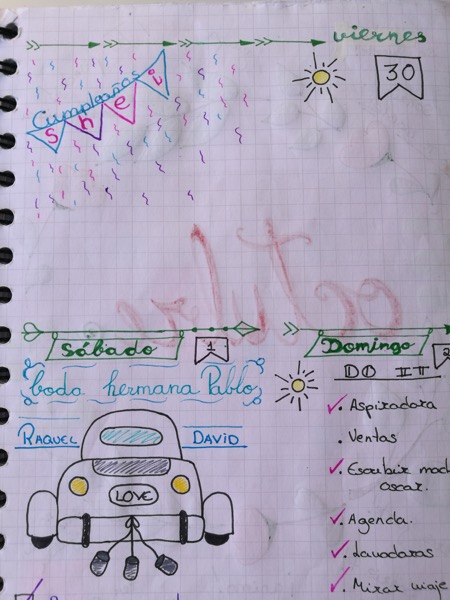 viernes
30
Cumpleaños
shei
octubre
Sábado
1
boda hermana Pablo
RAQUEL DAVID
LOVE
Domingo
2
DO IT
Aspiradora
Ventas
Escribir mod
oscar.
Agenda.
Lavadoras
Mirar viaje